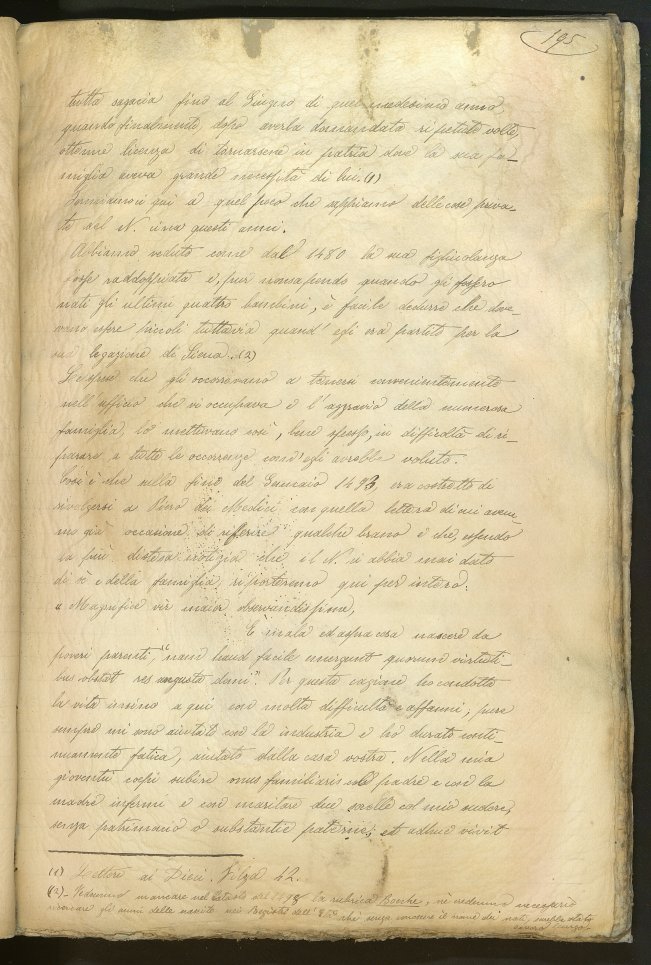 195
tutta sagacia fino al Giugno di quel medesimo anno
quando finalmente, dopo averla domandata ripetute volte,
ottenne licenza di tornarsene in patria dove la sua fa-
miglia aveva grande necessità di lui. (1)
Torniamo qui a quel poco che sappiamo delle cose priva-
te del N. in questi anni.
Abbiamo veduto come dal 1480 la sua figliuolanza
fosse raddoppiata e, pur non sapendo quando gli fossero
nati gli ultimi quattro bambini, è facile dedurre che dove-
vano essere piccoli tuttavia quand' egli era partito per la
sua legazione di Siena. (2)
Le spese che gli occorrevano a tenersi convenientemente
nell' ufficio che vi occupava e l' aggravio della numerosa
famiglia, lo mettevano così, bene spesso, in difficoltà di ri-
parare a tutte le occorrenze com' egli avrebbe voluto.
Così è che nella fine del Gennaio 1493 era costretto di
rivolgersi a Piero dei Medici con quella lettera di cui avem-
mo già occasione di riferire qualche brano e che, essendo
la più distesa notizia che il N. ci abbia mai dato
di sè e della famiglia, riporteremo qui per intero.
" Magnifice vir maior observandissime,
E mala ed aspra cosa nascere da
poveri parenti, "nam haud facile emergunt quorum virtuti-
bus obstat res angusta domi". Per questa cagione ho condotto
la vita insino a qui con molta difficultà e affanni, pure
sempre mi sono aiutato con la industria e ho durato conti-
nuamente fatica, aiutato dalla casa vostra. Nella mia
gioventù cepi subire onus familiaris col padre e con la
madre infermi e con maritare due sorelle col mio sudore,
senza patrimonio o substantie paterne; et adhuc vivit
(1) Lettere ai Dieci. Filza 42.
(2) - Vedremo mancare nel Catasto del 1498 la rubrica Bocche, nè vedemmo necessario
ricercare gli anni delle nascite nei Registri dell' che senza conoscere il nome dei nati, sarebbe stato